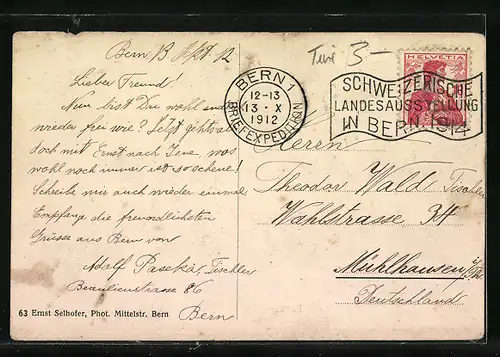 Bern 13 Sept 12
Tier 3 —
Lieber Freund!
Nun bist Du wohl
wieder frei wie? Jetzt
doch mit Ernst nach Jena, was
wohl noch immer ist so schöne!
Schreibe mir auch wieder einmal
Empfange die freundlichsten
Grüsse aus Bern von
Adolf Paseka, Tischler
Beaulieustrasse 86
Bern
63 Ernst Selhofer, Phot. Mittelstr. Bern
BERN 1
12-13
13 · X
1912
BRIEFEXPEDITION
HELVETIA
SCHWEIZERISCHE
LANDESAUSSTELLUNG
IN BERN 1914
Herrn
Theodor Wald Tischler
Wahlstrasse 34
Mühlhausen i/Th.
Deutschland